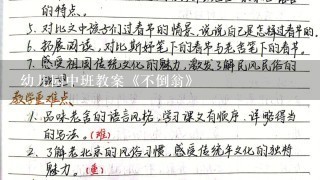 的特点。
5. 对比文中孩子们过春节的情景,说说自己是怎样过春节的。
6. 拓展阅读,对比斯好笔下的春节与老舍笔下的春节。
7. 感受祖国传统文化的魅力,激发了解民风民俗的
幼儿园中班教案《不倒翁》
教学重难点
1. 品味老舍的语言风格,学习课文有顺序、详略得当
的写法。(难)
2. 了解老北京的风俗习惯,感受传统年文化的独特
魅力。(重)